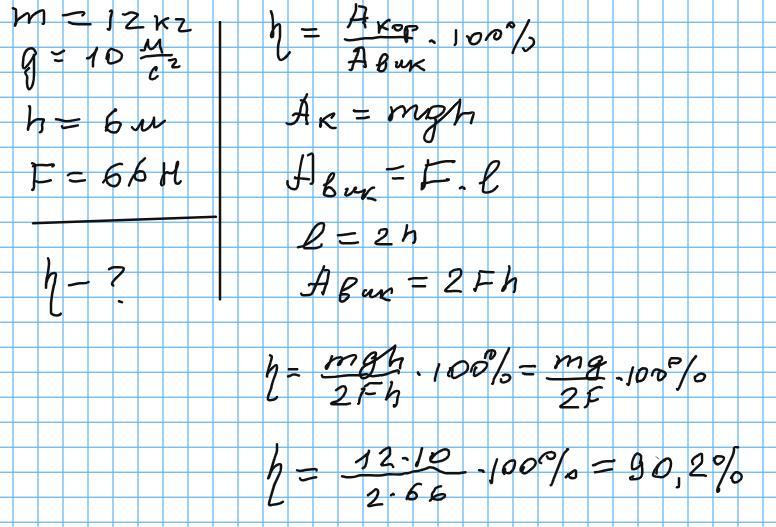 m = 12 кг
g = 10 м/с²
h = 6 м
F = 66 Н
η – ?
η = Aкор/Aвик · 100%
Aк = mgh
Aвик = F · l
l = 2h
Aвик = 2Fh
η = mgh/2Fh · 100% = mg/2F · 100%
η = 12·10/2·66 · 100% = 90,2%